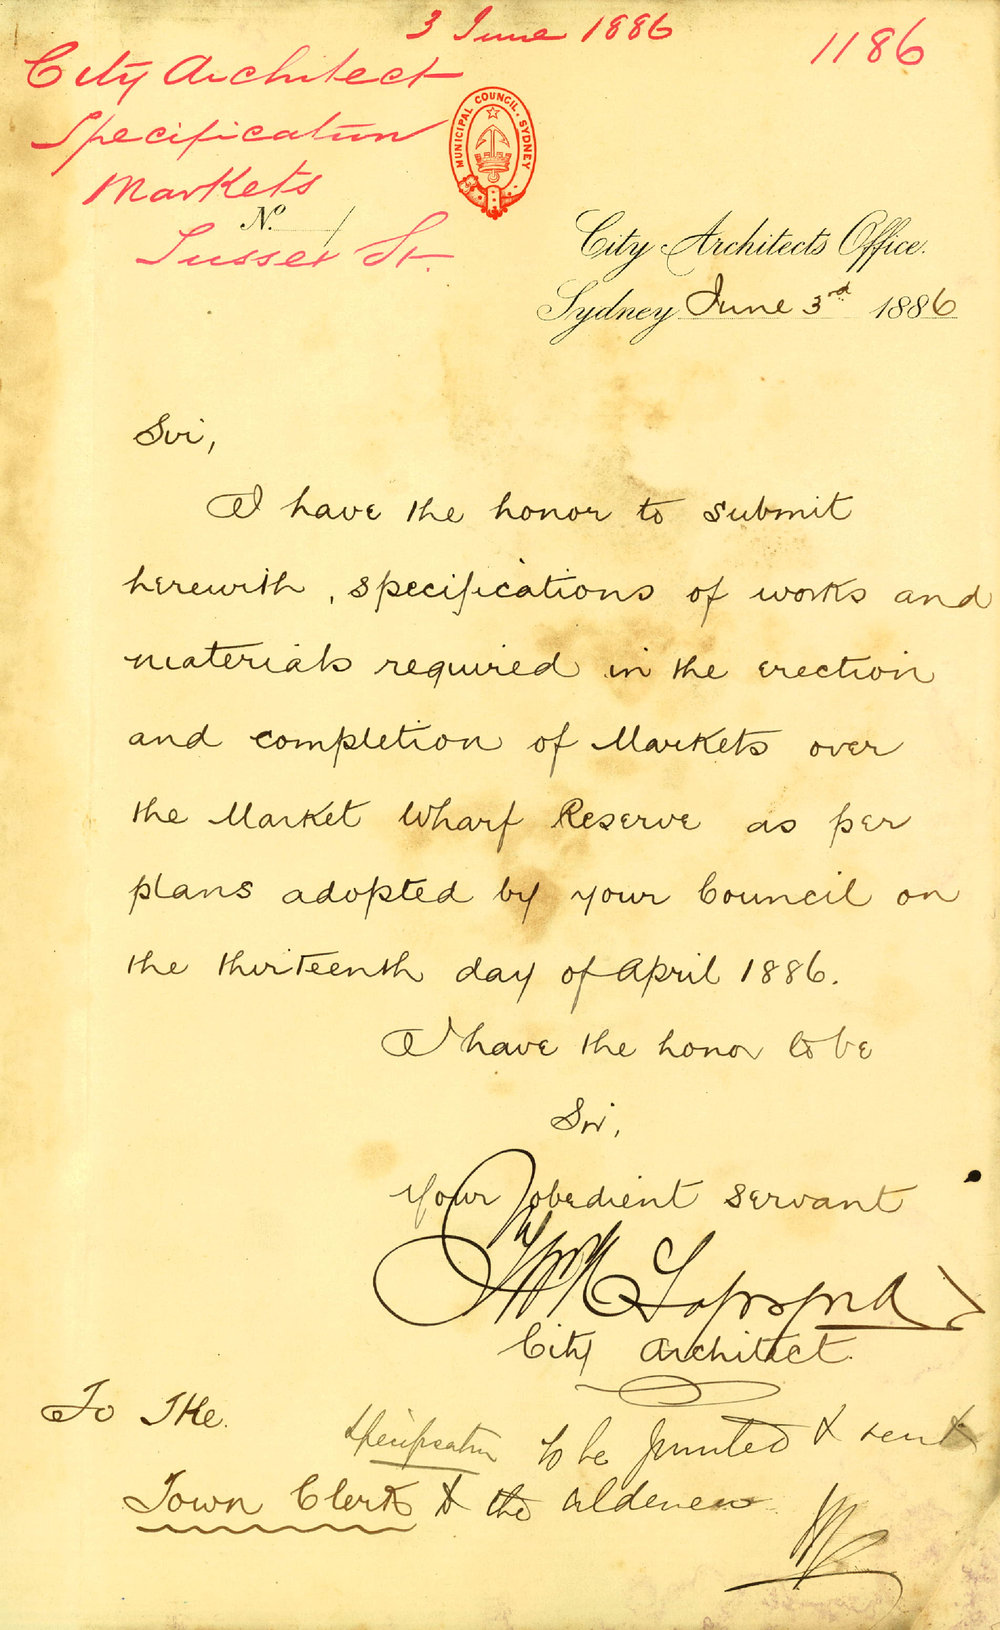 3 June 1886
1186
City Architect
Specification
Markets
Sussex St.
MUNICIPAL COUNCIL. SYDNEY
No. 
City Architects Office.
Sydney June 3rd 1886
Sir,
I have the honor to submit
herewith, specifications of works and
materials required in the erection
and completion of Markets over
the Market Wharf Reserve as per
plans adopted by your Council on
the thirteenth day of April 1886.
I have the honor to be
Sir,
Your obedient servant
City Architect.
To The
Specification to be printed & sent
Town Clerk
to the aldermen